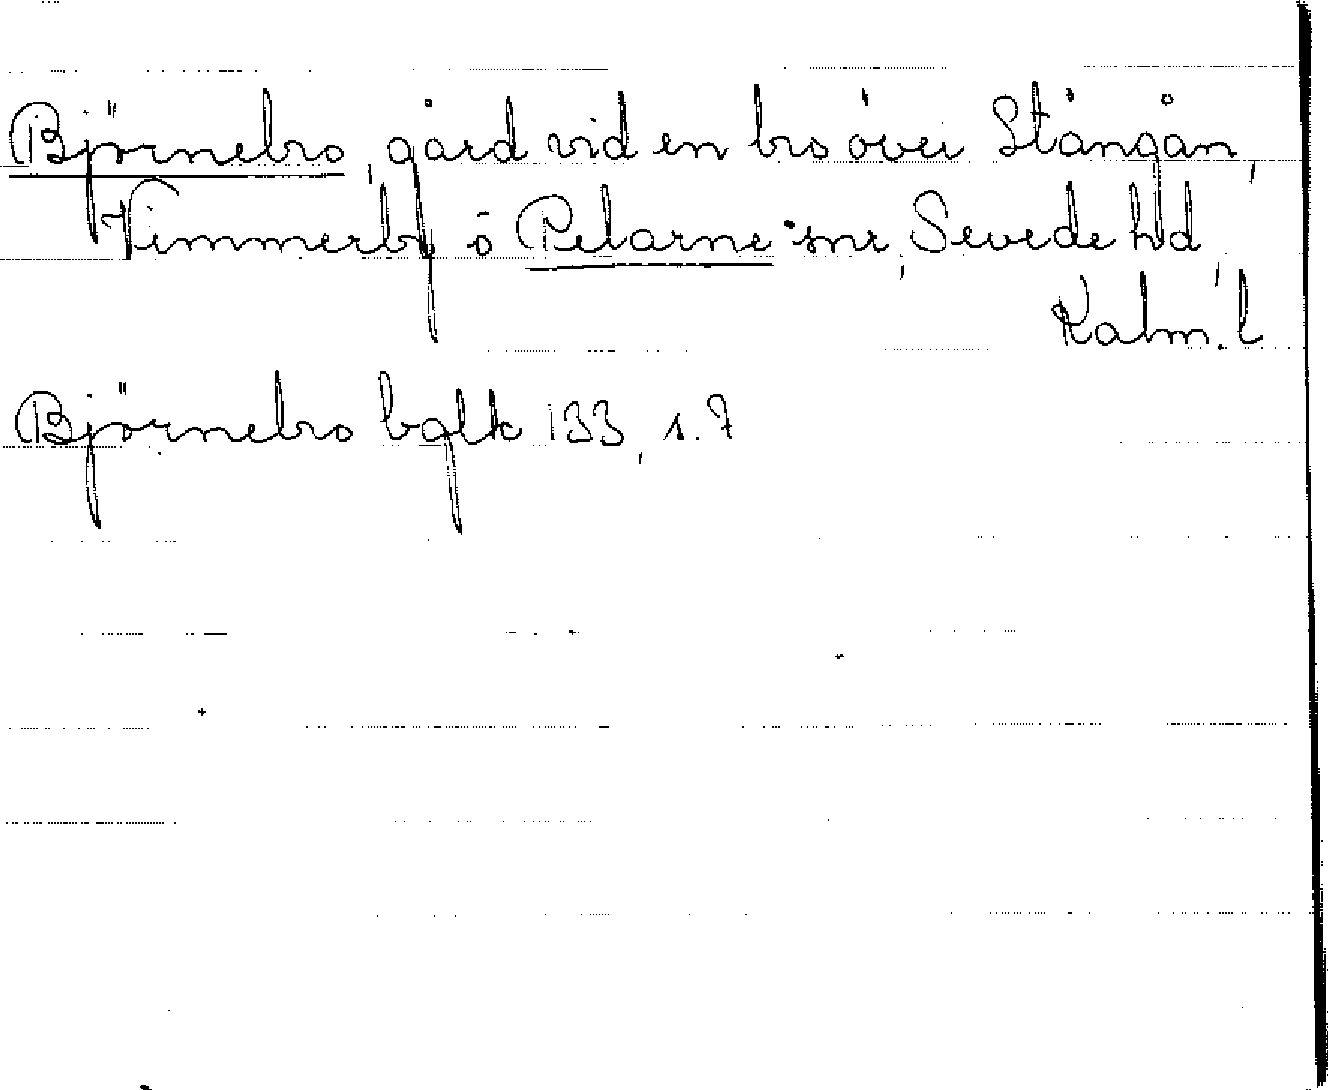 Björnebro, gård vid en bro över Stångån,
Vimmerby o Pelarne snr, Sevede hd,
Kalm. l
Björnebro bglk 133, s. 7